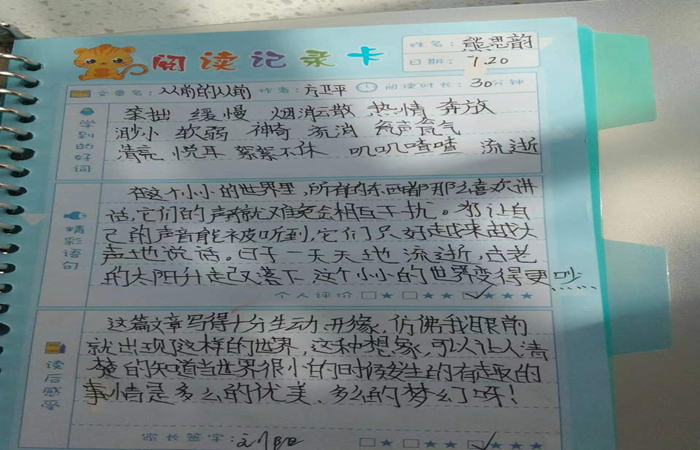 阅读记录卡
姓名：熊思韵
日期：1.20
文章名：从前的从前 作者：方卫平 阅读时长：30分钟
学到的好词
笨拙 缓慢 烟消云散 热情奔放
渺小 软弱 神奇 流淌
清亮 悦耳 絮絮不休 叽叽喳喳 流逝
精彩语句
在这个小小的世界里，所有的东西都那么喜欢讲
话，它们的声音就难免会相互干扰。要让自
己的声音能被听到，它们只好越来越大
声地说话。日子一天天地流逝，古老
的太阳升起又落下，这个小小的世界变得更吵……
个人评价
读后感受
这篇文章写得十分生动、形像，仿佛我眼前
就出现了这样的世界，这种想象，引人让人清
楚的知道当世界很小的时候发生的有趣的
事情是多么的优美、多么的梦幻呀！
家长签字：